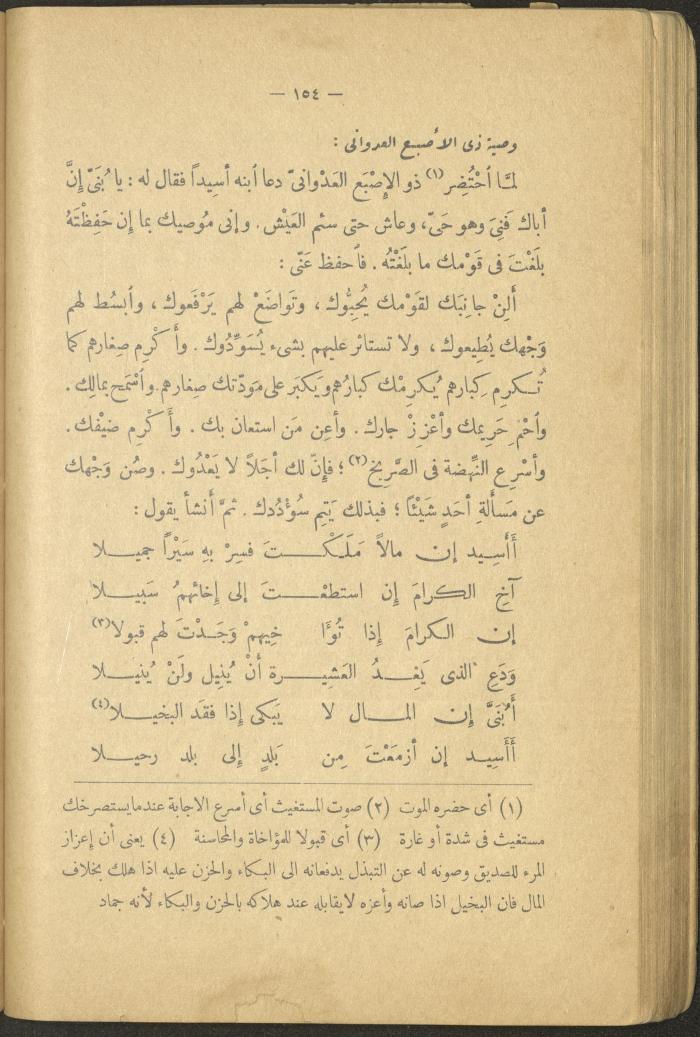 — ١٥٤ —
وصية ذى الأصبع العدوانى :
لمَّا أحْتُضِر(١) ذو الإصْبَع العَدْوانىّ دعا أبنه أسِيداً فقال له : يا بُنَىَّ إنَّ
أباك فَنِىَ وهو حَىّ، وعاش حتى سئم العَيْش . وإنى مُوصيك بما إن حَفِظْتَهُ
بلَغْتَ فى قَوْمك ما بلَغْتُه . فاَحفظ عَنّى :
أَلِنْ جانِبَك لقَوْمك يُحِبُّوك ، وتَواضَعْ لهم يَرْفَعوك ، وأبسُط لهم
وَجْهك يُطِيعوك ، ولا تستاثر عليهم بشىء يُسَوِّدُوك . وأَكْرِم صِغارهم كما
تُكرِم كِبارهم يُكرِمْك كبارُهم ويَكبَر على مودّتك صِغارهم. وأسْمَح بمالِك .
وأحْمِ حَرِيمك وأعْزِزْ جارك . وأعِن مَن استعان بك . وأَكْرِم ضَيْفك .
وأسْرِع النَّهْضة فى الصَّرِيخ(٢)؛ فإنّ لك أجَلاً لا يَعْدُوك . وصُن وَجْهك
عن مَسأَلةِ أحَدٍ شَيْئًا ؛ فبذلك يَتِم سُوْدُدك . ثمَّ أَنشأ يقول :
أَأَسِيد إن مالاً مَلَكْتَ فسِرْ بهِ سَيْراً جميلا
آخِ الكرامَ إن استطعْتَ إلى إخائهمُ سَبِيلا
إن الكرامَ إذا تُوَّا خِيهمْ وَجَدْتَ لهم قبولا(٣)
وَدَعِ الذى يَعِدُ العَشِيرة أنْ يُنِيل ولَنْ يُنيلا
أَبُنَىَّ إن المال لا يَبكى إذا فقَد البخيلا(٤)
أَأَسِيد إن أزمَعْتَ مِن بَلَدٍ إلى بلد رحيلا
(١) أى حضره الموت (٢) صوت المستغيث أى أسرع الاجابة عندما يستصرخك
مستغيث فى شدة أو غارة (٣) أى قبولا للمؤاخاة والمحاسنة (٤) يعنى أن إعزاز
المرء للصديق وصونه له عن التبذل يدفعانه الى البكاء والحزن عليه اذا هلك بخلاف
المال فان البخيل اذا صانه وأعزه لايقابله عند هلاكه بالحزن والبكاء لأنه جماد